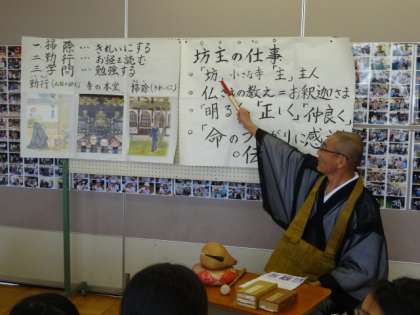 一 掃除…きれいにする
二 勤行…お経を読む
三 学問…勉強する
勤行 寺の本堂 掃除
坊主の仕事
「坊」小さな寺「主」主人
仏さまの教え＝お釈迦さま
「明るく」「正しく」「仲良く」
「命のつながりに感
伝